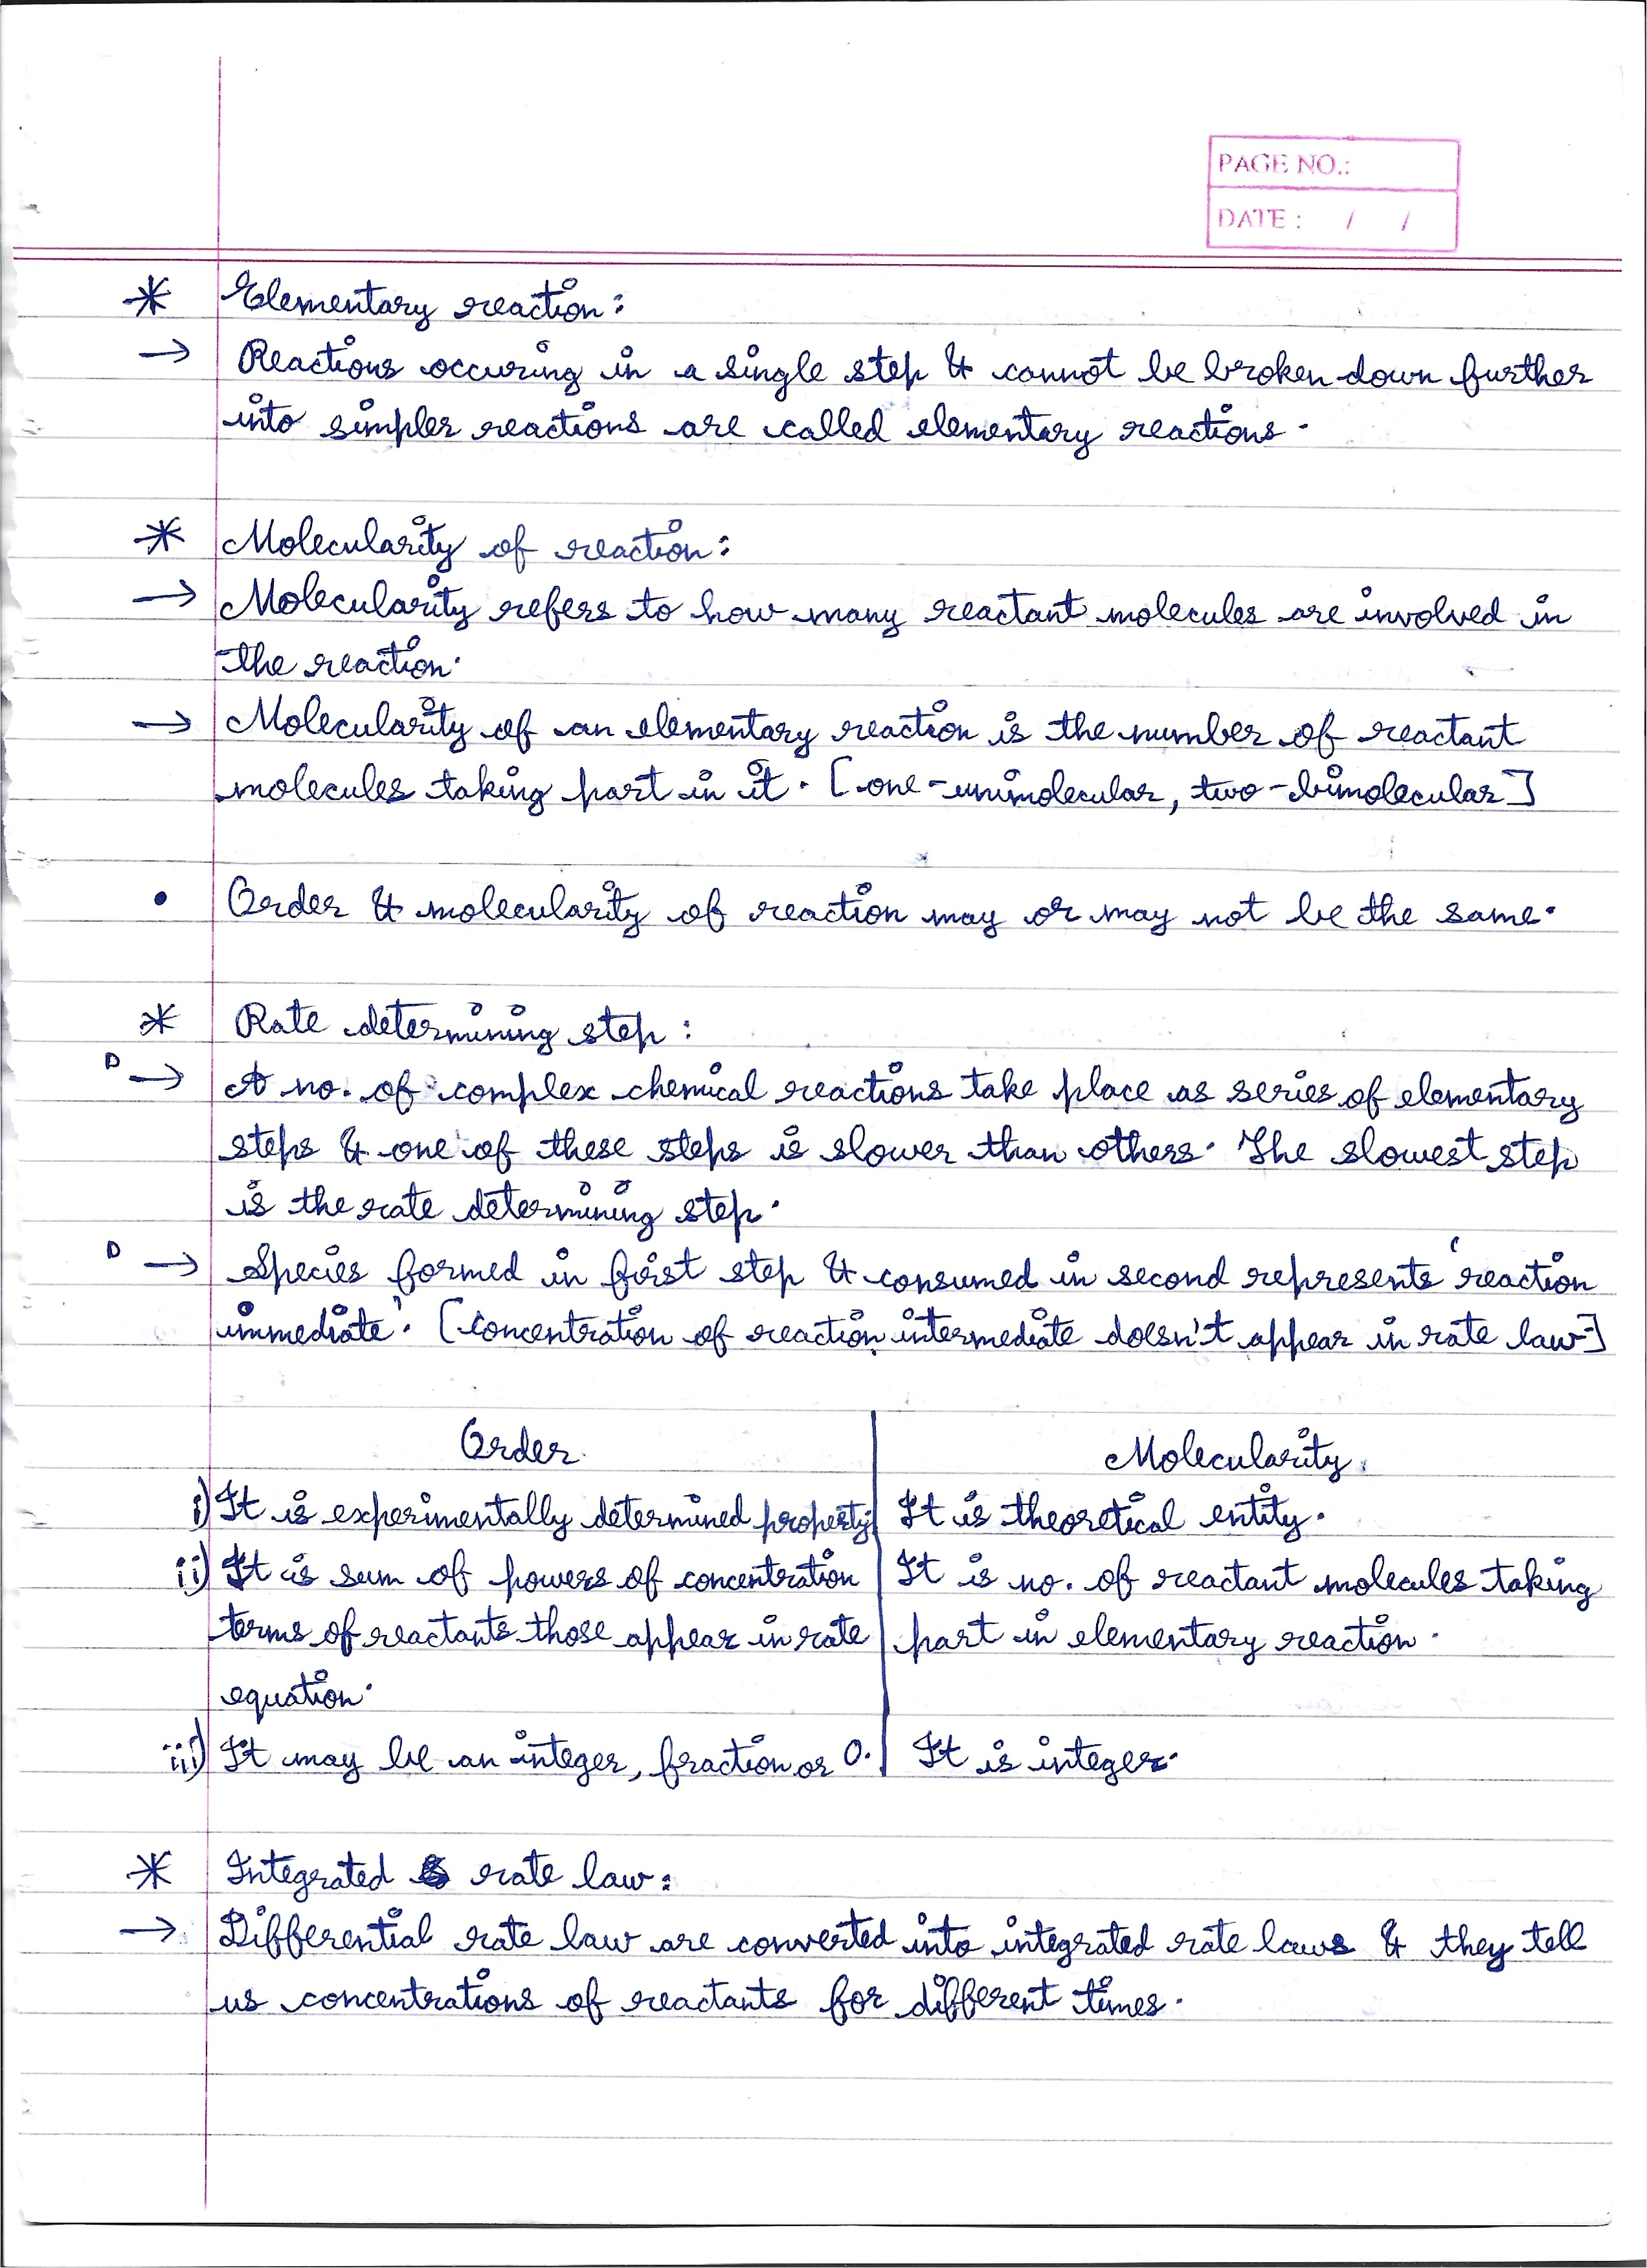 PAGE NO.:
DATE : / /
* Elementary reaction:
→ Reactions occuring in a single step & cannot be broken down further
into simpler reactions are called elementary reactions.
* Molecularity of reaction:
→ Molecularity refers to how many reactant molecules are involved in
the reaction.
→ Molecularity of an elementary reaction is the number of reactant
molecules taking part in it. [one-unimolecular, two-bimolecular]
• Order & molecularity of reaction may or may not be the same.
* Rate determining step:
D → A no. of complex chemical reactions take place as series of elementary
steps & one of these steps is slower than others. The slowest step
is the rate determining step.
D → Species formed in first step & consumed in second represents 'reaction
immediate'. [Concentration of reaction intermediate doesn't appear in rate law]
Order | Molecularity
i) It is experimentally determined property. | It is theoretical entity.
ii) It is sum of powers of concentration | It is no. of reactant molecules taking
terms of reactants those appear in rate | part in elementary reaction.
equation.
iii) It may be an integer, fraction or 0. | It is integer.
* Integrated rate law:
→ Differential rate law are converted into integrated rate laws & they tell
us concentrations of reactants for different times.